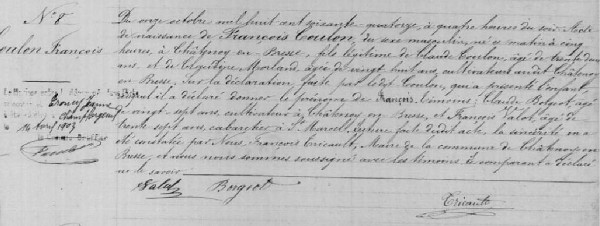 N° 8
Coulon François
Du onze octobre mil huit cent soixante quatorze, à quatre heures du soir. Acte
de naissance de François Coulon, du sexe masculin, né ce matin à cinq
heures, à Châtenoy en Bresse, fils légitime de Claude Coulon, âgé de trente deux
ans, et de Morland, âgée de vingt huit ans, cultivateurs audit Châtenoy
en Bresse. Sur la déclaration faite par ledit Coulon, qui a présenté l'enfant
auquel il a déclaré donner le prénom de François. Témoins: Claude Borgeot, âgé
de vingt sept ans, cultivateur à Châtenoy en Bresse, et François Valot, âgé de
trente sept ans, cabaretier à St Marcel. Lecture faite dudit acte, la sincérité en a
été constatée par Nous François Tricaute, Maire de la commune de Châtenoy en
Bresse, et nous nous sommes soussigné avec les témoins le comparant a déclaré
ne le savoir
Valot Borgeot
Tricaute
Champforgeuil
avril 1901